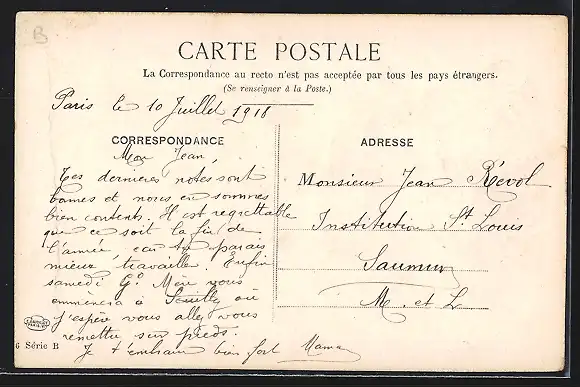 B
CARTE POSTALE
La Correspondance au recto n'est pas acceptée par tous les pays étrangers.
(Se renseigner à la Poste.)
Paris le 10 Juillet 1918
CORRESPONDANCE
Mon Jean,
Tes dernières notes sont
bonnes et nous en sommes
bien contents. Il est regrettable
que ce soit la fin de
l'année, car tu parais
mieux travailler. Enfin
samedi Gd Mère vous
emmènera à Souilly où
j'espère vous allez vous
remettre sur pieds.
Je t'embrasse bien fort Maman
6 Série B
ADRESSE
Monsieur Jean Révol
Institution St Louis
Saumur
M. et L.